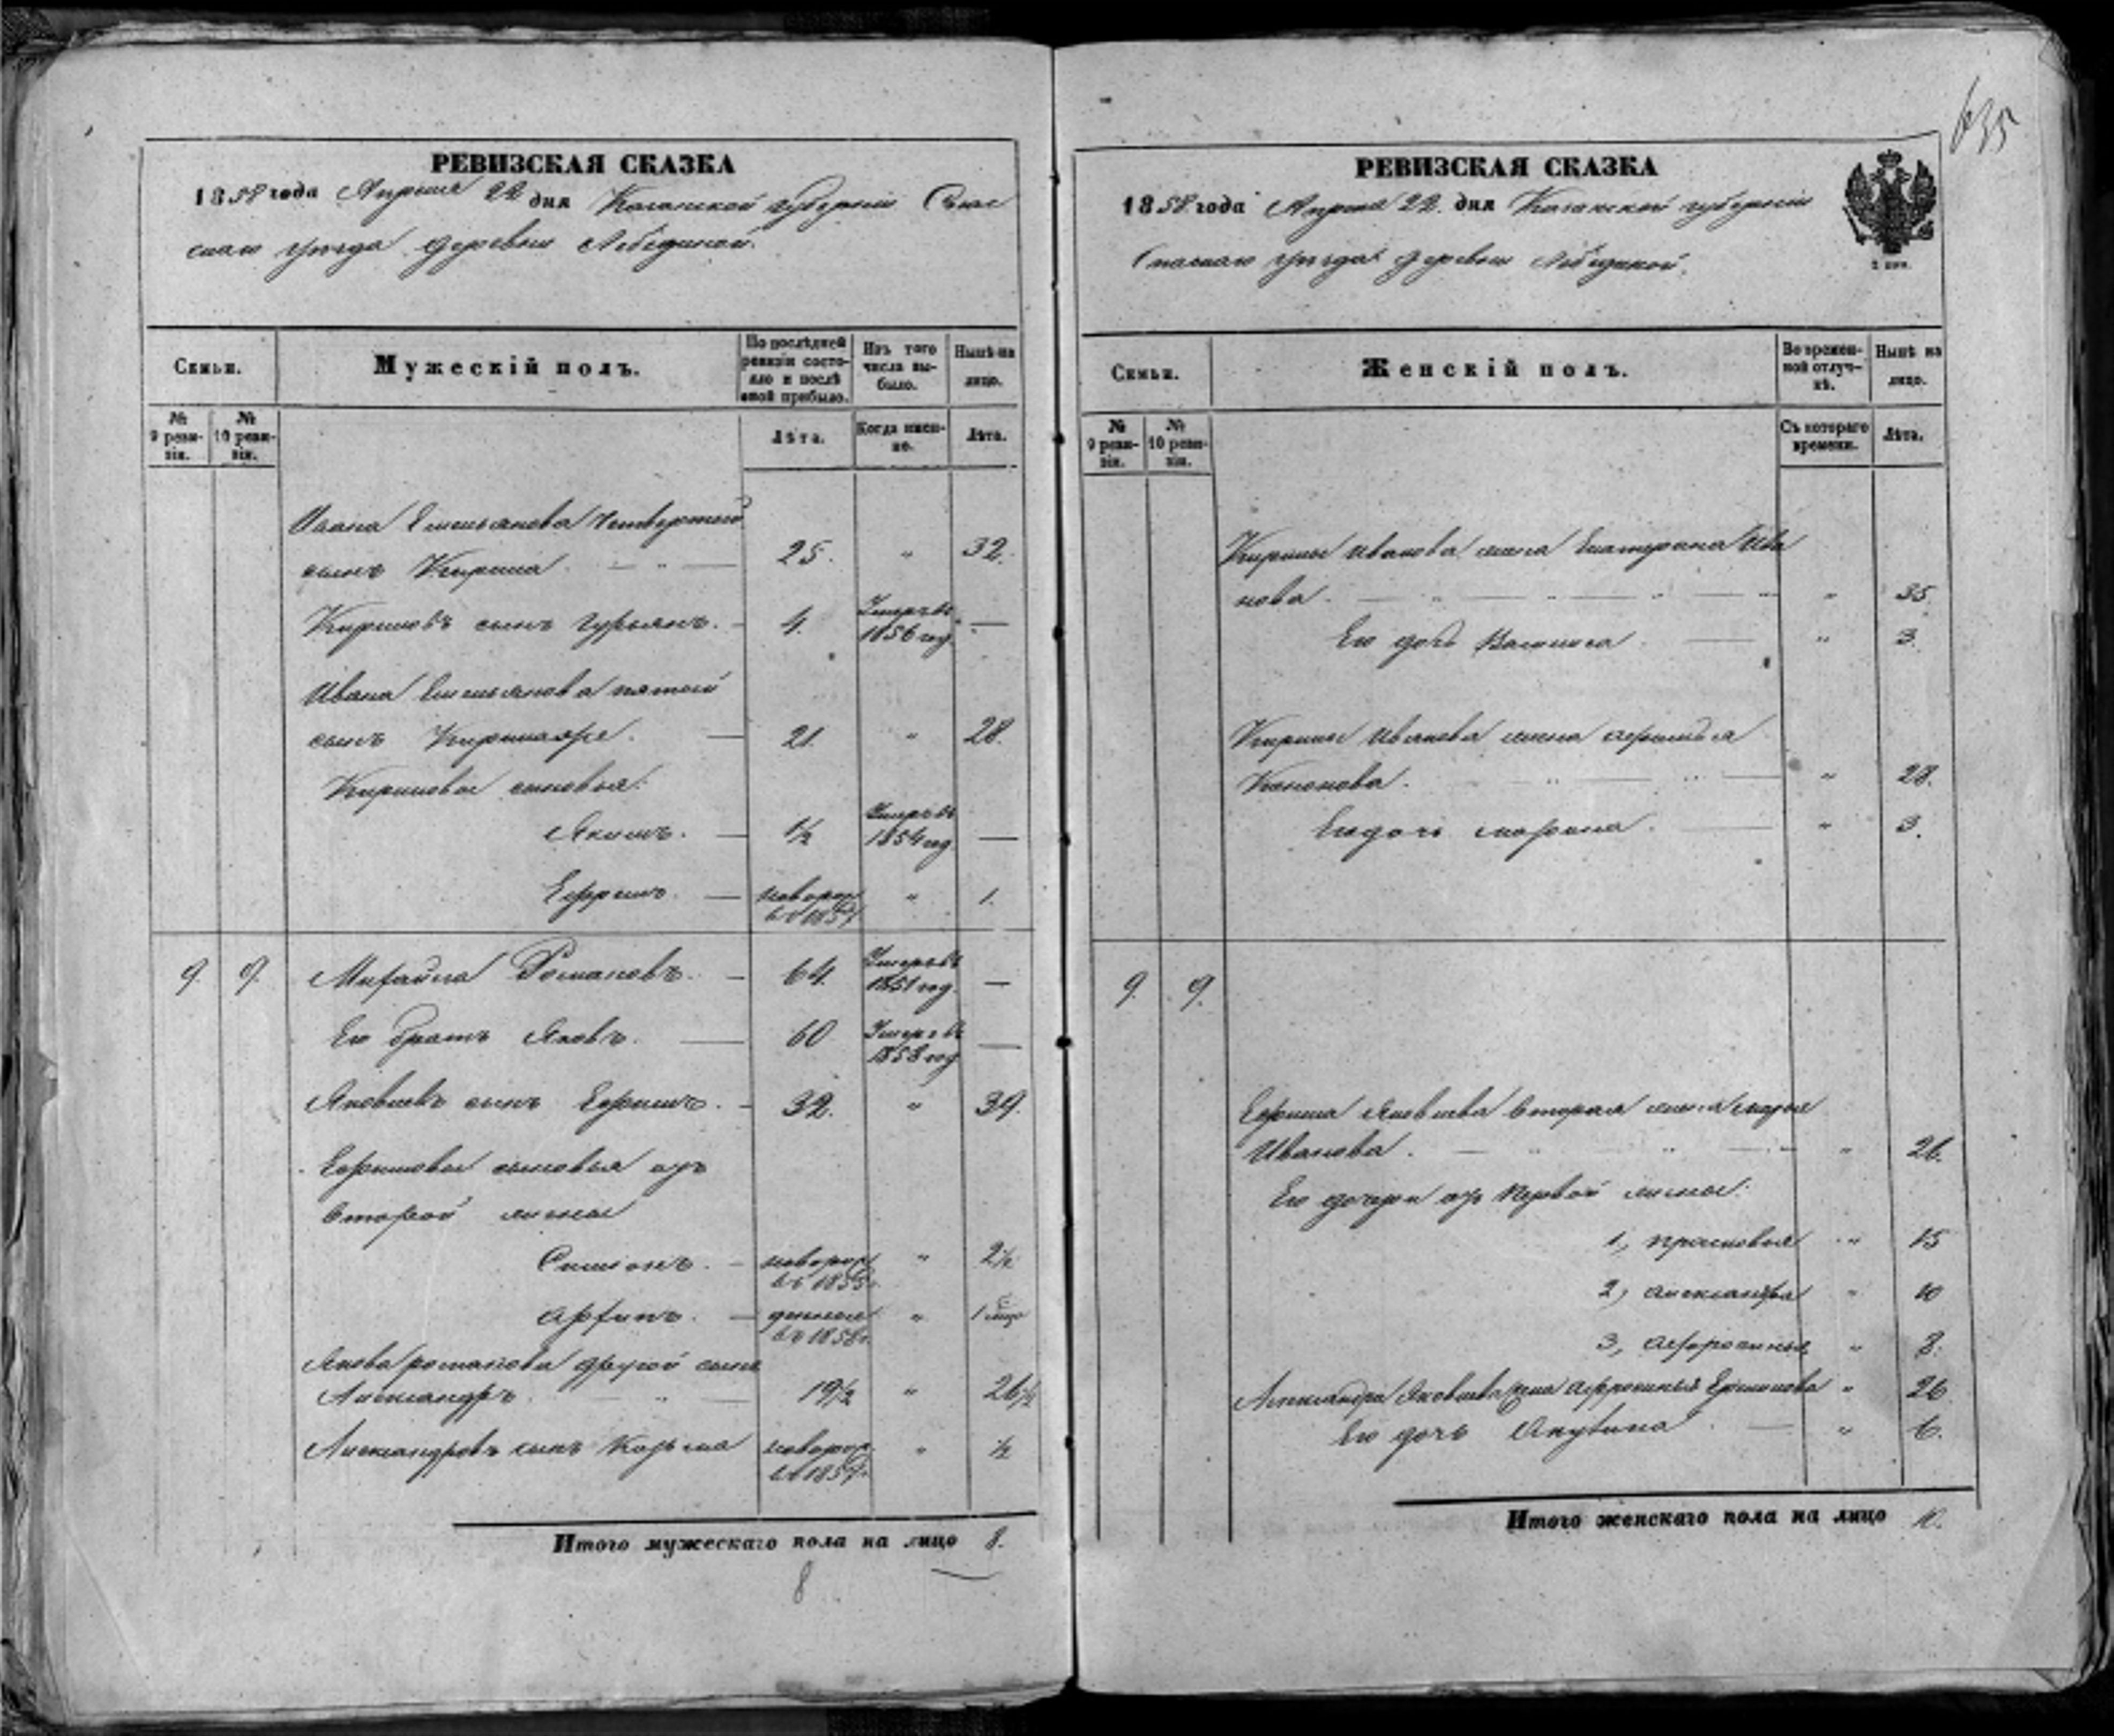 635
РЕВИЗСКАЯ СКАЗКА
1858 года Апреля 22 дня Казанской губернiи Спас
скаго уѣзда деревни Лебединой.
Семьи.
Мужескiй полъ.
По послѣдней ревизiи состояло и послѣ оной прибыло.
Изъ того числа выбыло.
Нынѣ на лицо.
№ 9 ревизiи.
№ 10 ревизiи.
Лѣта.
Когда именно.
Лѣта.
Ивана Емельянова четвертый
сынъ Кирила. — 25. " 32.
Кириловъ сынъ Гурьянъ. — 4. Умеръ въ 1856 год. —
Ивана Емельянова пятый
сынъ Кирила — 21. " 28.
Кириловы сыновья:
Якимъ. — 1/2 Умеръ въ 1854 год —
Ефремъ. — новорож въ 1857 " 1.
9. 9. Михайла Романовъ. — 64. Умеръ въ 1851 год. —
Его братъ Яковъ. — 60 Умеръ въ 1858 год —
Яковлевъ сынъ Ефимъ. — 32. " 39.
Ефимовы сыновья отъ
второй жены
Симionъ. — новорож въ 1855 " 2 1/2
— въ 1858 г. " 1
Якова Романова другой сынъ
Александръ. — 19 1/2 " 26 1/2
Александровъ сынъ Козьма новорож въ 1857 г. " 1/2
Итого мужескаго пола на лицо 8.
8
РЕВИЗСКАЯ СКАЗКА
1858 года Апреля 22. дня Казанской губернiи
Спаскаго уѣзда деревни Лебединой.
Семьи.
Женскiй полъ.
Во временной отлучкѣ.
Нынѣ на лицо.
№ 9 ревизiи.
№ 10 ревизiи.
Съ котораго времени.
Лѣта.
Кирилы Иванова жена Екатерина Ива
нова. — " 35.
Его дочь Василиса. — " 3.
Кирилы Иванова жена
Кононова. — " 28.
Его дочь Марина. — " 3.
9. 9.
Ефима Яковлева вторая жена Марья
Иванова. — " 26.
Его дочери отъ первой жены:
1, Прасковья " 15
2, Александра " 10
3, Афросинья " 8.
Александра Яковлева жена Афросинья " 26
Его дочь Акулина — " 6.
Итого женскаго пола на лицо 10.